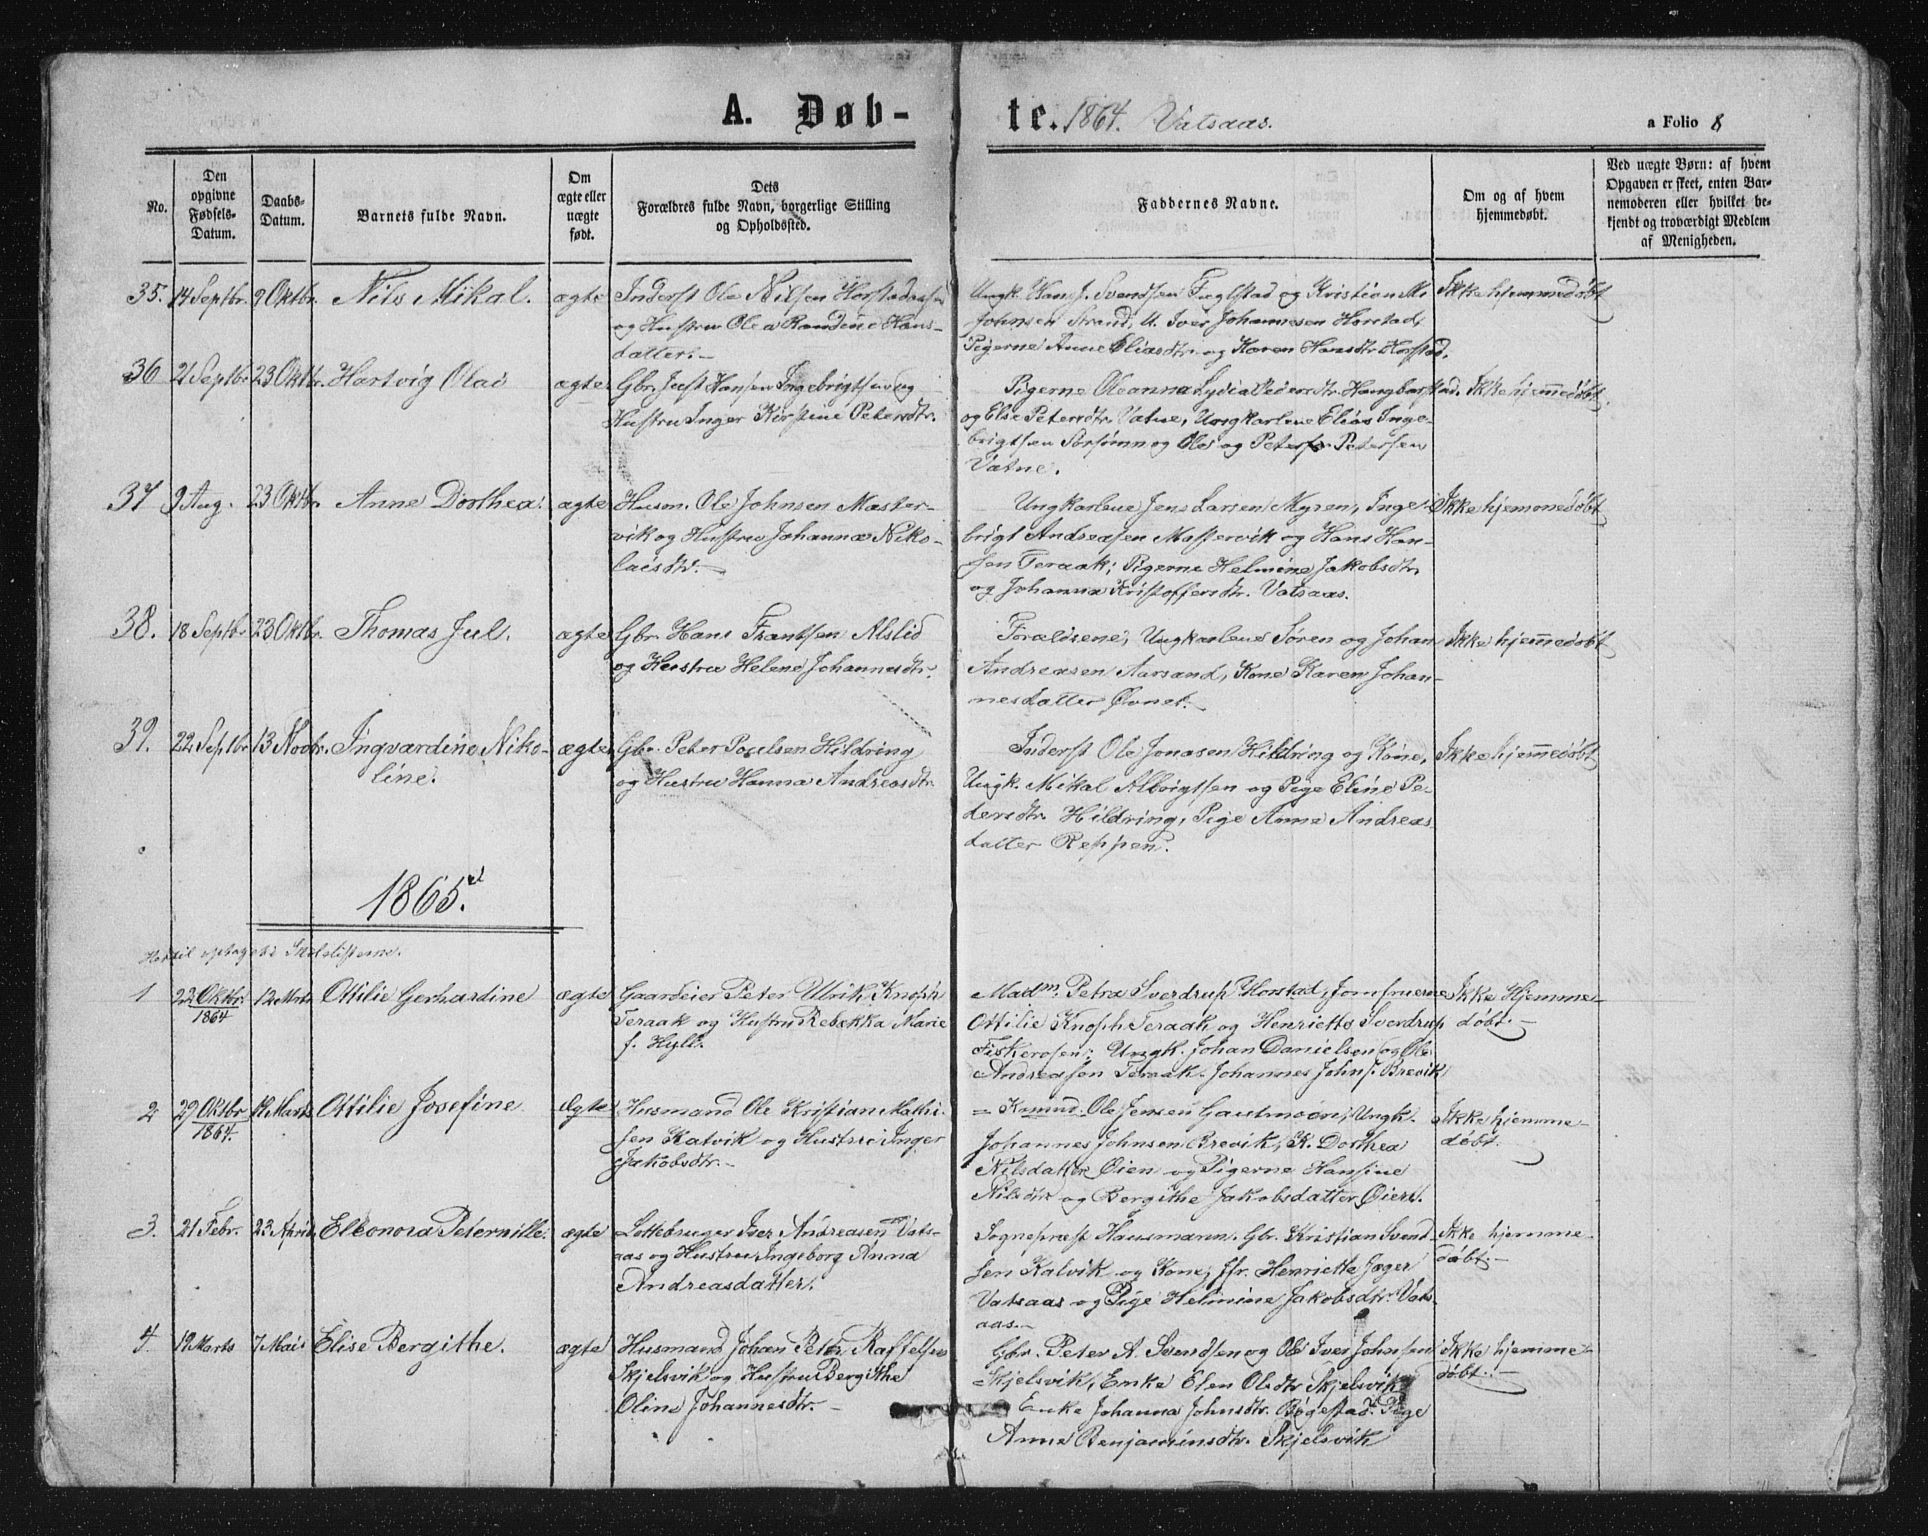 A. Døb-
te. 1864. Vatsaas.
a Folio 8
No.
Den opgivne Fødsels-Datum.
Daabs-Datum.
Barnets fulde Navn.
Om ægte eller uægte født.
Dets Forældres fulde Navn, borgerlige Stilling og Opholdssted.
Faddernes Navne.
Om og af hvem hjemmedøbt.
Ved uægte Børn: af hvem Opgaven er skeet, enten Barnemoderen eller hvilket bekjendt og troværdigt Medlem af Menigheden.
35. 14 Septbr. 9 Oktbr. Nils Mikal. ægte
Inderst Ole Nilsen
og Hustru Olea Randine Hans-
datter.-
Ungk. Hans J. Svendsen Fuglstad og Kristian M.
Johnsen Strand, U. Iver Johannesen Horstad,
Pigerne Anne Eliasdtr. og Karen Hansdtr. Horstad.
Ikke hjemmedøbt
36 21 Septbr 23 Oktbr. Hartvig Olai ægte
Gbr. Just Hansen Ingebrigtsen og
Hustru Inger Kirstine Petersdtr.
Pigerne Oleanna Lydia Pedersdtr.
og Else Petersdtr. Vatne, Ungkarlene Elias Inge-
brigtsen Sørsømn og Ole og Peter Petersen
Vatne.
Ikke hjemmedøbt.
37 9 Aug. 23 Oktbr. Anne Dorthea. ægte
Husm. Ole Johnsen Master-
vik og Hustru Johanna Niko-
laisdtr.-
Ungkarlene Jens Larsen Myren, Inge-
brigt Andreasen Mastervik og Hans Han-
sen Teraak; Pigerne Helmine Jakobsdtr.
og Johanna Kristoffersdtr. Vatsaas.
Ikke hjemmedøbt
38. 18 Septbr 23 Oktbr. Thomas Jul. ægte
Gbr. Hans Frantsen Alslid
og Hustru Helene Johannesdtr.
Forældrene, Ungkarlene Søren og Johan
Andreasen Aarsand, Kone Karen Johan-
nesdatter Øvnet.-
Ikke hjemmedøbt
39. 22 Septbr 13 Novbr. Ingvardine Niko-
line. ægte
Gbr. Peter Poulsen Hildring
og Hustru Hanna Andreasdtr.
Inderst Ole Jonasen Hildring og Kone,
Ungk. Mikal Albrigtsen og Pige Eline Pe-
dersdtr. Hildring, Pige Anne Andreas-
datter Reppen.
Ikke hjemmedøbt
1865.
Hertil optaget i Skolelisterne.
1 22 Oktbr. 1864 12 Marts Ottilie Gerhardine ægte
Gaardeier Peter Ulrik Knoph
Teraak og Hustru Rebækka Marie
f. Hyll.
Madm. Petra Sverdrup Horstad, Jomfruerne
Ottilie Knoph Teraak og Henriette Sverdrup
Fiskerosen; Ungk. Johan Danielsen og Ole
Andreasen Teraak. Johannes Johns. Brevik
Ikke Hjemme-
døbt.-
2 29 Oktbr 1864. Marts Ottilie Josefine Ægte
Husmand Ole Kristian Mathi-
sen Kalvik og Hustru Inger
Jakobsdtr.-
Ole Jensen Ungk.
Johannes Johnsen Brevik, K. Dorthea
Nilsdatter Øien og Pigerne Hansine
Nilsdtr og Bergithe Jakobsdatter Øien.
Ikke hjemme-
døbt.
3. 21 Febr. 23 April Elleonora Peternille. ægte
Iver Andreasen Vats-
aas og Hustru Ingeborg Anna
Andreasdatter.
Sognepræst Hausmann. Gbr. Kristian Svend-
sen Kalvik og Kone, Jfr. Henriette Jæger
Vatsaas og Pige Helmine Jakobsdtr. Vats-
aas.-
Ikke hjemme-
døbt.-
4. 12 Marts 7 Mai Elise Bergithe. ægte
Husmand Johan Peter Raffelsen
Skjelsvik og Hustru Bergithe
Oline Johannesdtr.-
Gbr. Peter A. Svendsen og Ole Iver Johnsen
Skjelsvik, Enke Elen Olsdtr Skjelsvik
Enke Johanna Johnsdtr. Bøgestad. Pige
Anne Benjaminsdtr. Skjelsvik
Ikke hjemme-
døbt.-